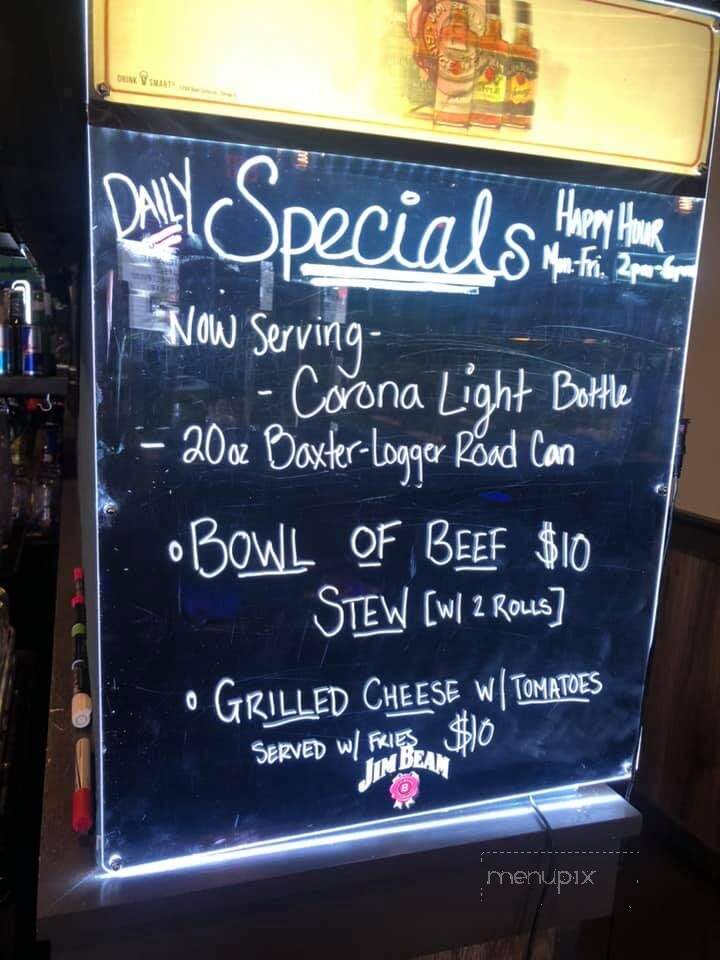 DRINK SMART®
DAILY Specials
HAPPY HOUR
Mon-Fri. 2pm-6pm
Now Serving-
- Corona Light Bottle
- 20oz Baxter-Logger Road Can
• BOWL OF BEEF $10
STEW [W/ 2 ROLLS]
• GRILLED CHEESE W/ TOMATOES
SERVED W/ FRIES $10
JIM BEAM
B
menupix